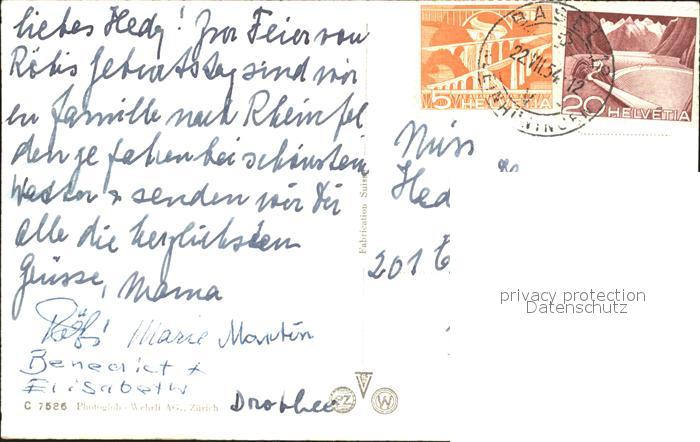 liebes Hedy! Zur Feier von
Röbis Geburtstag sind wir
en famille nach Rheinfel
den gefahren bei schönstem
Wetter & senden wir Dir
alle die herzlichsten
Grüsse, Mama
Röbi Marie Martin
Benedict +
Elisabeth
Dorothee
C 7586 Photoglob-Wehrli AG., Zürich
Fabrication Suisse
5 HELVETIA
20 HELVETIA
BASEL
22.VII.54-12
Miss
Hed
201
privacy protection
Datenschutz